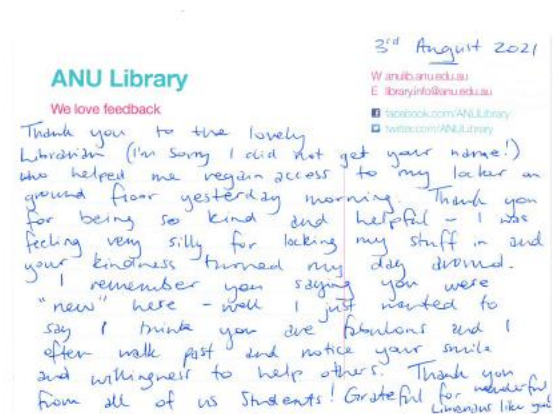 3rd August 2021
ANU Library
W anulib.anu.edu.au
E library.info@anu.edu.au
We love feedback
facebook.com/ANULibrary
twitter.com/ANULibrary
Thank you to the lovely
Librarian (I'm sorry I did not get your name!)
who helped me regain access to my locker on
ground floor yesterday morning. Thank you
for being so kind and helpful - I was
feeling very silly for locking my stuff in and
your kindness turned my day around.
I remember you saying you were
"new" here - well I just wanted to
say I think you are fabulous and I
often walk past and notice your smile
and willingness to help others. Thank you
from all of us Students! Grateful for wonderful
Librarians like you